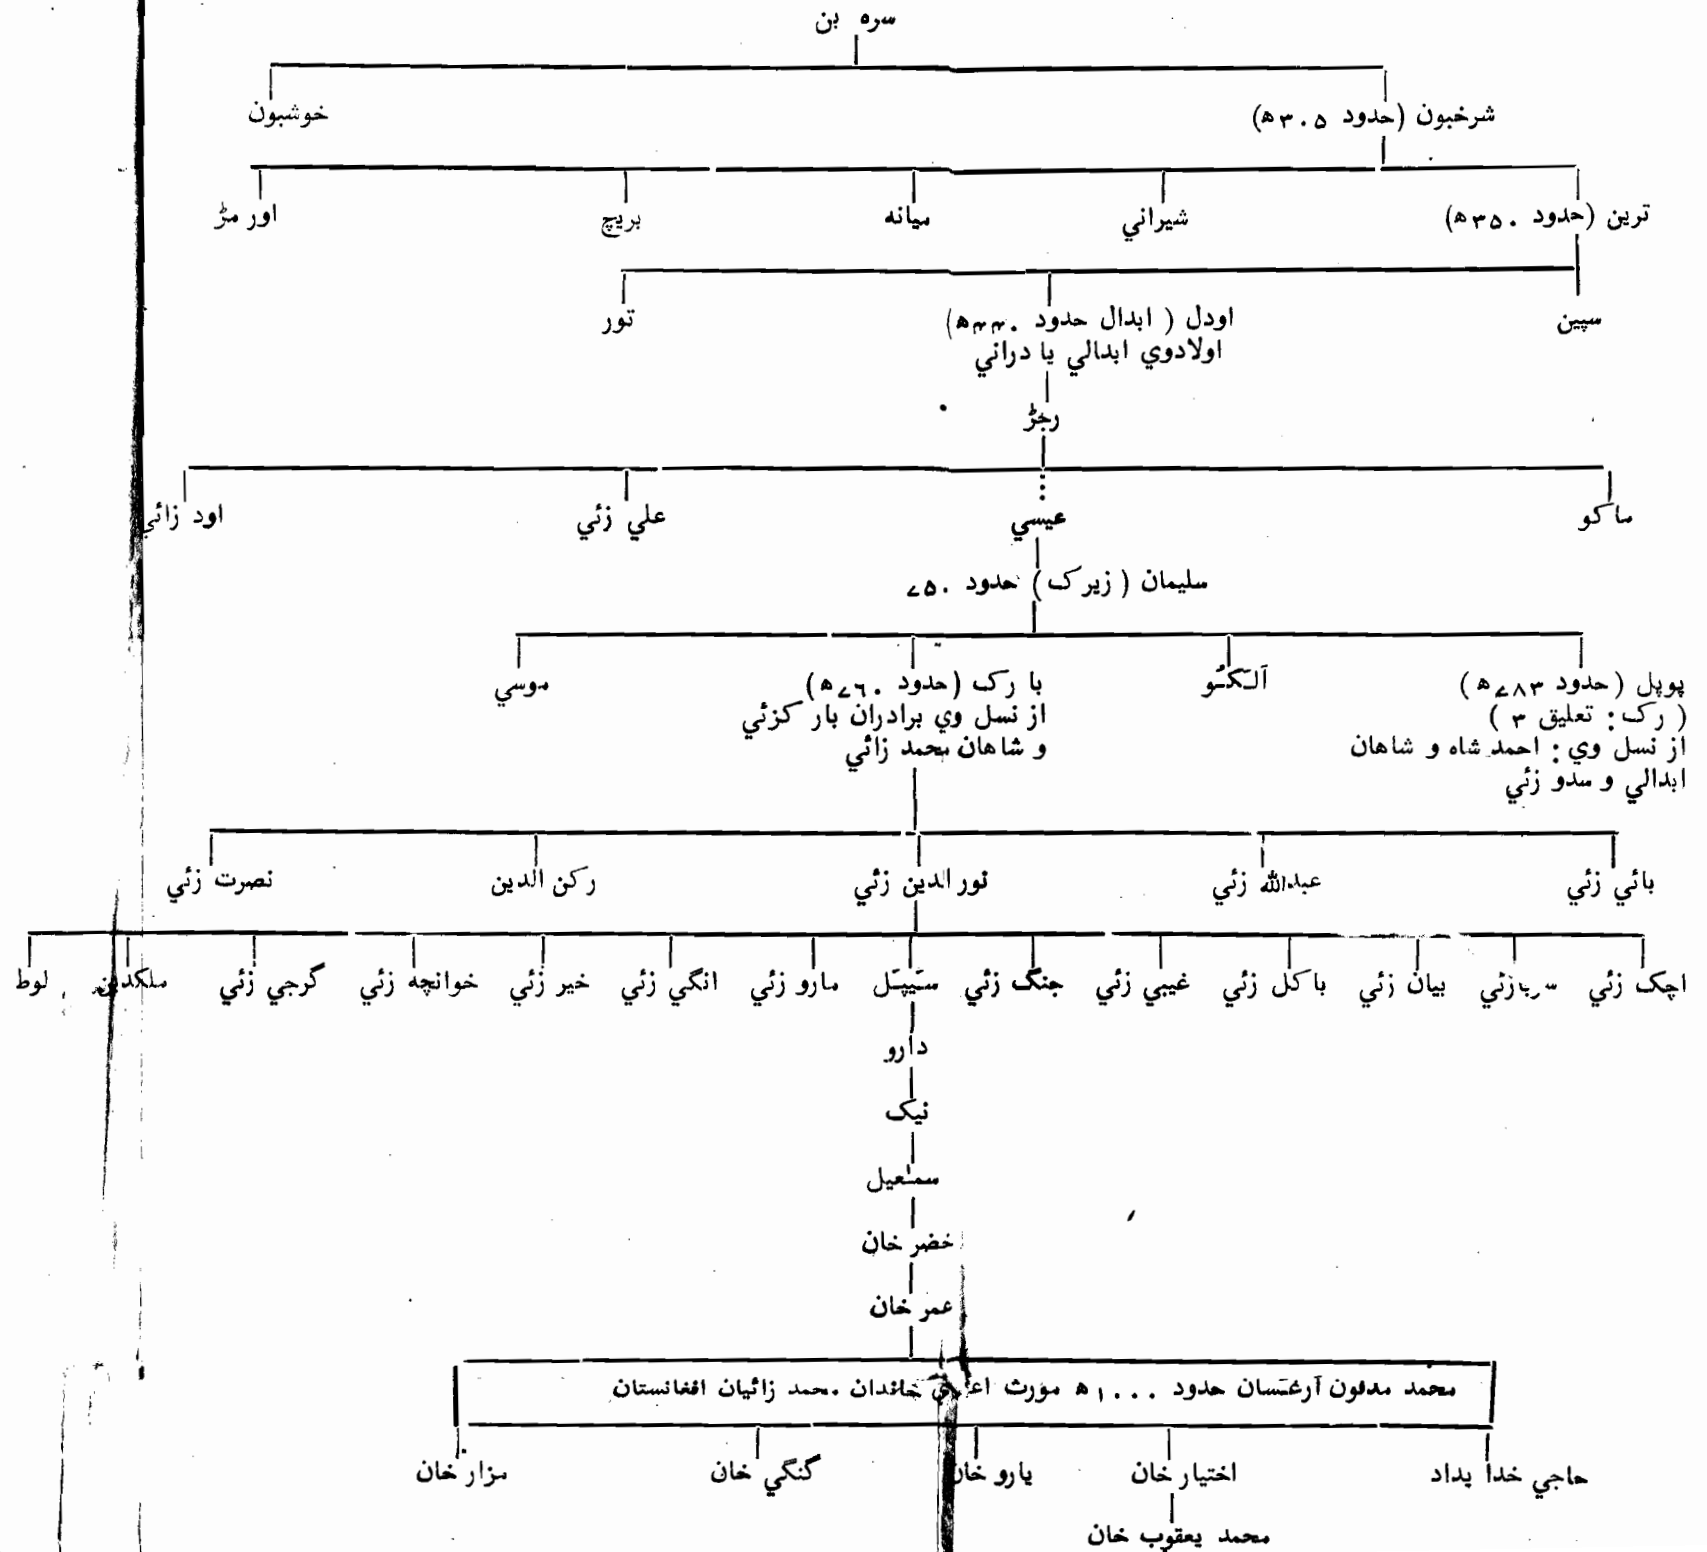 سره بن
شرخبون (حدود ۳۰۵ھ)
خوشبون
ترین (حدود ۳۵۰ھ)
شیراني
میانه
بریڅ
اور مړ
سپین
اودل ( ابدال حدود ۴۴۰ھ)
اولادوي ابدالي یا دراني
تور
رجړ
ماکو
عیسي
علي زئي
اود زائي
سلیمان ( زیرک ) حدود ۷۵۰
پوپل (حدود ۷۸۳ھ)
( رک : تعلیق ۳ )
از نسل وي : احمد شاه و شاهان
ابدالي و سدو زئي
الکو
با رک (حدود ۷۶۰ھ)
از نسل وي برادران بار کزئي
و شاهان محمد زائي
موسي
بائي زئي
عبدالله زئي
نور الدین زئي
رکن الدین
نصرت زئي
اچک زئي
بیان زئي
باکل زئي
غیبي زئي
جنګ زئي
سیپل
مارو زئي
انګي زئي
خیر زئي
خوانچه زئي
گرجي زئي
ملکدین
لوط
دارو
نیک
سمعیل
خضر خان
عمر خان
محمد مدفون آرغسان حدود ۱۰۰۰ھ مورث خاندان محمد زائیان افغانستان
حاجي خدا یداد
اختیار خان
یارو خان
گنگي خان
مزار خان
محمد یعقوب خان